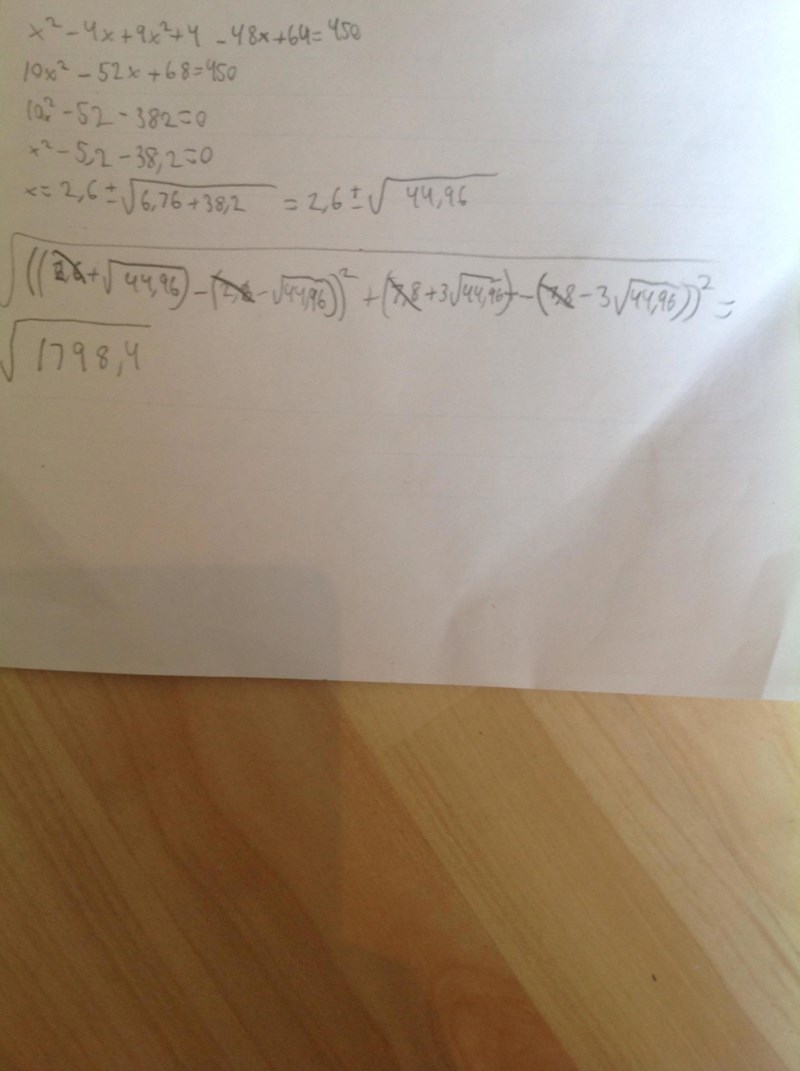 x² - 4x + 9x² + 4 - 48x + 64 = 450
10x² - 52x + 68 = 450
10x² - 52 - 382 = 0
x² - 5,2 - 38,2 = 0
x = 2,6 ± √(6,76 + 38,2) = 2,6 ± √(44,96)
√(((2,6 + √44,96) - (2,6 - √44,96))² + (7,8 + 3√44,96) - (7,8 - 3√44,96))²) =
√1798,4